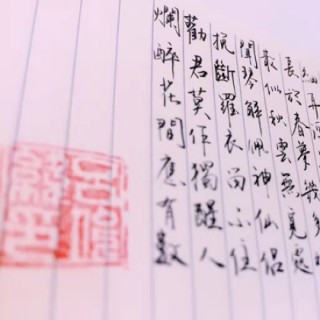 長於春夢幾多
散似秋雲無覓處
聞琴解佩神仙侶
挽斷羅衣留不住
勸君莫作獨醒人
爛醉花間應有數